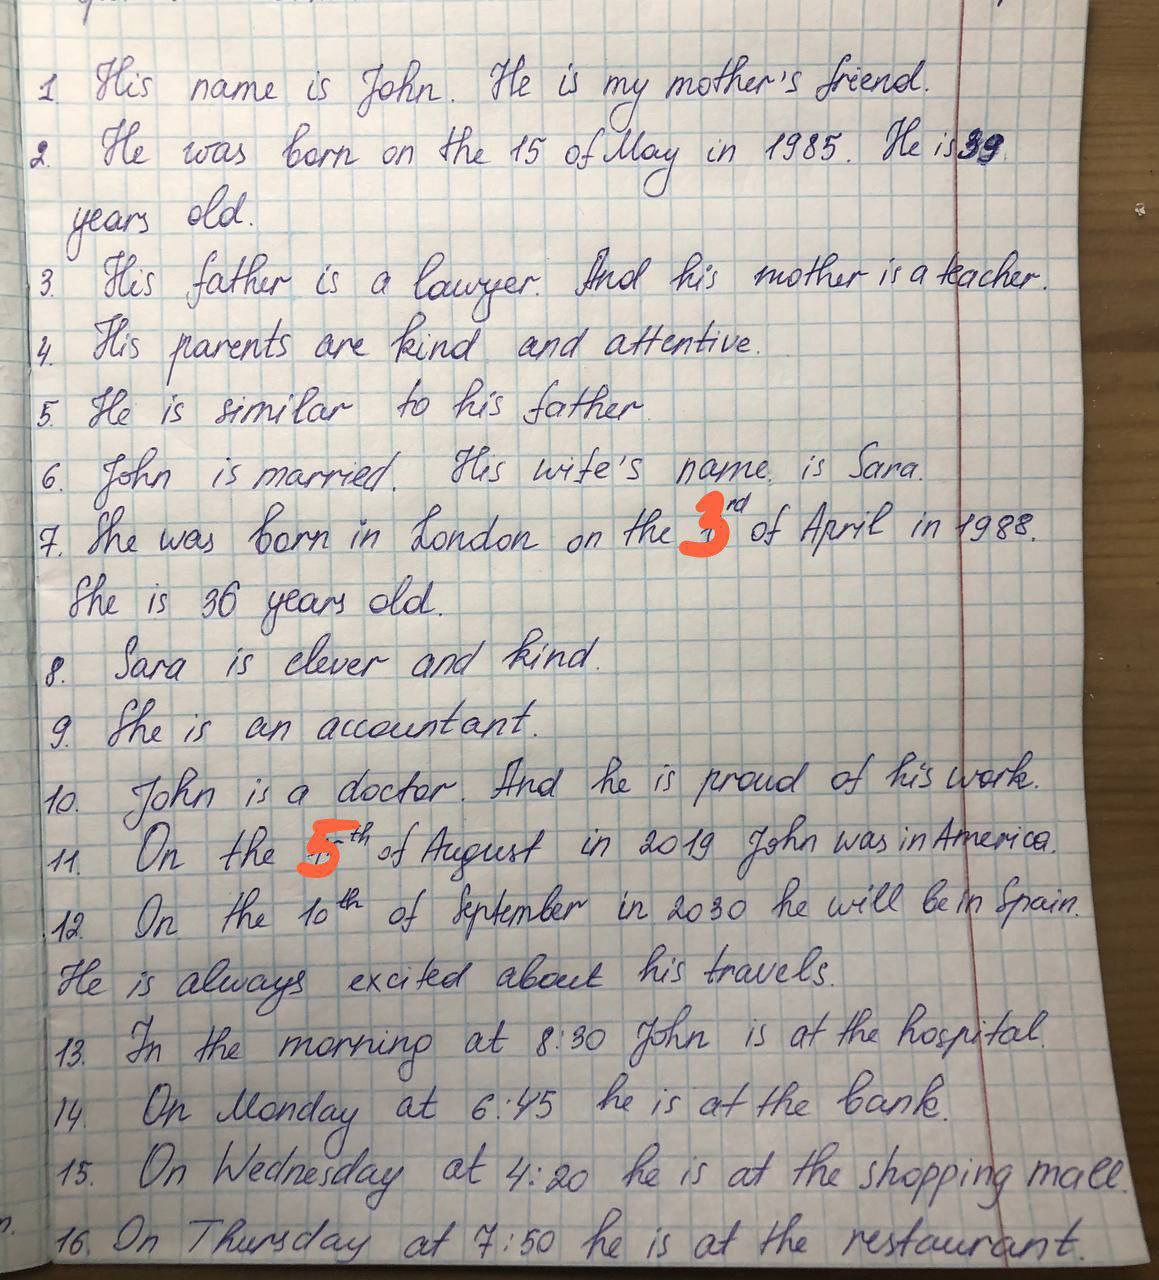 1. His name is John. He is my mother's friend.
2. He was born on the 15 of May in 1985. He is 39
years old.
3. His father is a lawyer. And his mother is a teacher.
4. His parents are kind and attentive.
5. He is similar to his father.
6. John is married. His wife's name is Sara.
7. She was born in London on the 3rd of April in 1988.
She is 36 years old.
8. Sara is clever and kind.
9. She is an accountant.
10. John is a doctor. And he is proud of his work.
11. On the 5th of August in 2019 John was in America.
12. On the 10th of September in 2030 he will be in Spain.
He is always excited about his travels.
13. In the morning at 8:30 John is at the hospital.
14. On Monday at 6:45 he is at the bank.
15. On Wednesday at 4:20 he is at the shopping mall.
16. On Thursday at 7:50 he is at the restaurant.